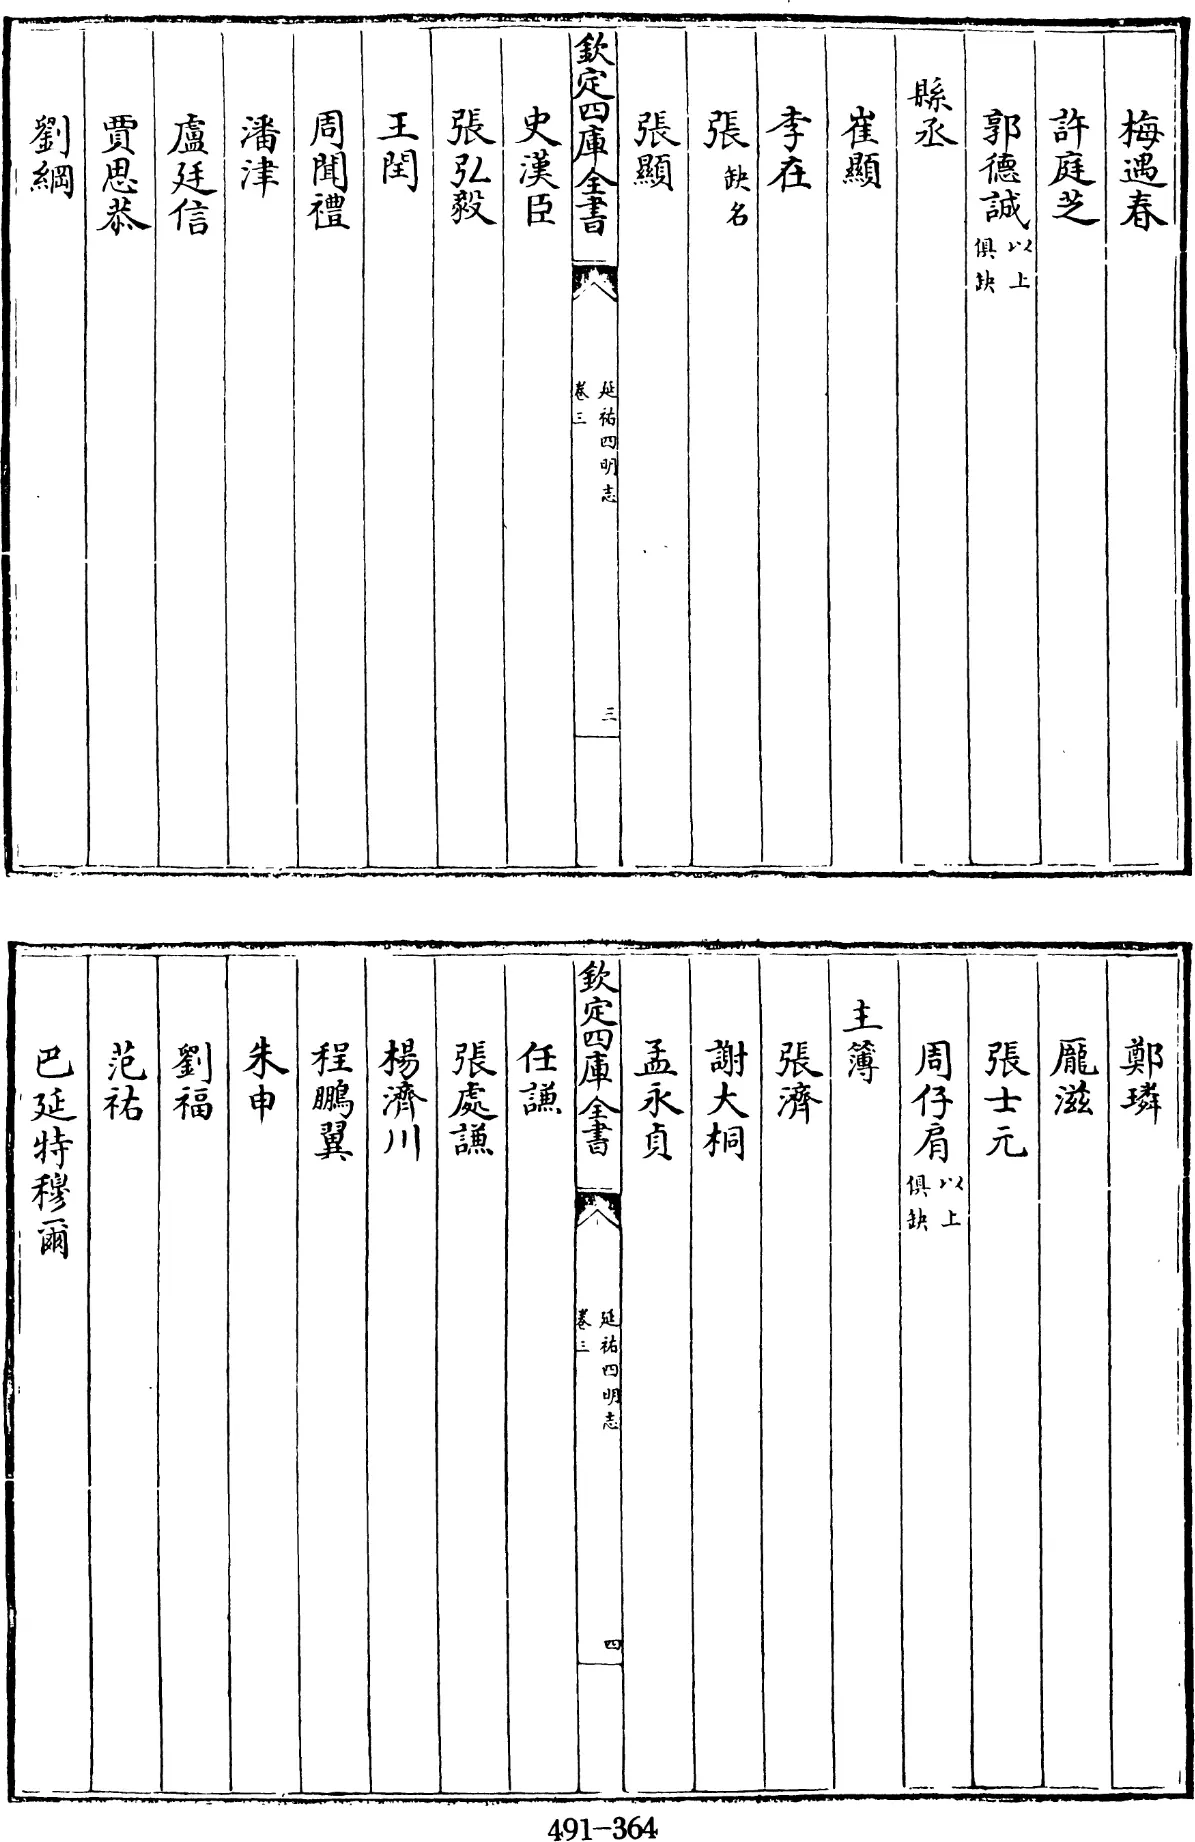 梅遇春
許庭芝
郭德誠以上俱缺
縣丞
崔顯
李在
張缺名
張顯
欽定四庫全書
延祐四明志
卷三
三
史漢臣
張弘毅
王閏
周聞禮
潘津
盧廷信
賈思恭
劉綱
鄭璘
龎滋
張士元
周仔肩以上俱缺
主簿
張濟
謝大桐
孟永貞
欽定四庫全書
延祐四明志
卷三
四
任謙
張處謙
楊濟川
程鵬翼
朱申
劉福
范祐
巴延特穆爾
491-364